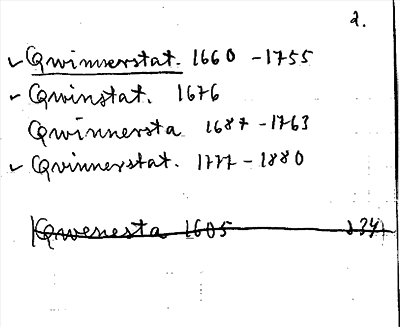 2.
✓ Qwinnerstat. 1660 - 1755
✓ Qwinstat. 1676
Qwinnersta 1687 - 1763
✓ Qvinnerstat. 1777 - 1880
Qwenesta 1605